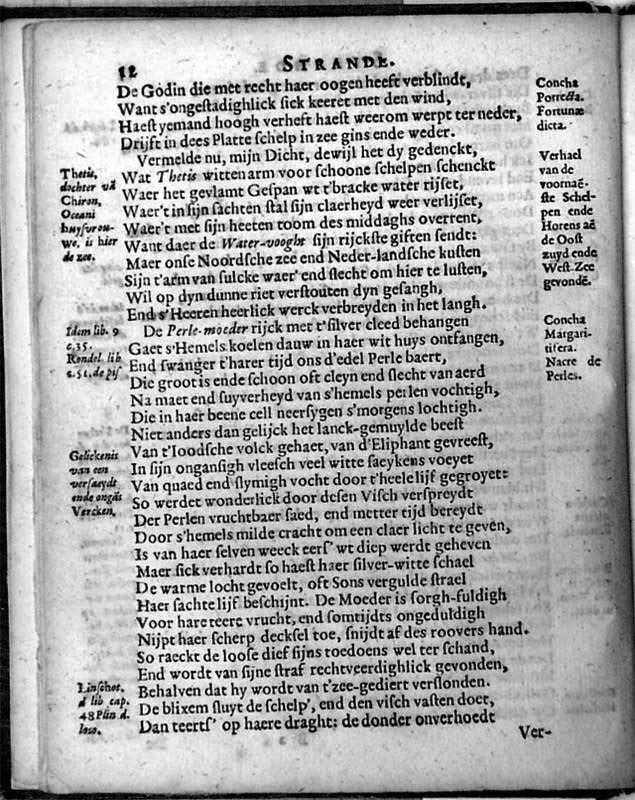 12
STRANDE.
De Godin die met recht haer oogen heeft verblindt,
Want s'ongestadighlick sick keeret met den wind,
Haest yemand hoogh verheft haest weerom werpt ter neder,
Drijft in dees Platte schelp in zee gins ende weder.
Vermelde nu, mijn Dicht, dewijl het dy gedenckt,
Wat Thetis witten arm voor schoone schelpen schenckt
Waer het gevlamt Gespan wt t'bracke water rijset,
Waer't in sijn sachten stal sijn claerheyd weer verlijset,
Waer't met sijn heeten toom des middaghs overrent,
Want daer de Water-vooght sijn rijckste giften sendt:
Maer onse Noordsche zee end Neder-landsche kusten
Sijn t'arm van sulcke waer' end slecht om hier te lusten,
Wil op dyn dunne riet verstouten dyn gesangh,
End s'Heeren heerlick werck verbreyden in het langh.
De Perle-moeder rijck met t'silver cleed behangen
Gaet s'Hemels koelen dauw in haer wit huys ontfangen,
End swanger t'harer tijd ons d'edel Perle baert,
Die groot is ende schoon oft cleyn end slecht van aerd
Na maet end suyverheyd van s'hemels perlen vochtigh,
Die in haer beene cell neersygen s'morgens lochtigh.
Niet anders dan gelijck het lanck-gemuylde beest
Van t'Ioodsche volck gehaet, van d'Eliphant gevreest,
In sijn ongansigh vleesch veel witte saeykens voeyet
Van quaed end slymigh vocht door t'heele lijf gegroyet:
So werdet wonderlick door desen Visch verspreydt
Der Perlen vruchtbaer saed, end metter tijd bereydt
Door s'hemels milde cracht om een claer licht te geven,
Is van haer selven weeck eers' wt diep werdt geheven
Maer sick verhardt so haest haer silver-witte schael
De warme locht gevoelt, oft Sons vergulde strael
Haer sachte lijf beschijnt. De Moeder is sorgh-fuldigh
Voor hare teere vrucht, end somtijdts ongeduldigh
Nijpt haer scherp decksel toe, snijdt af des roovers hand.
So raeckt de loose dief sijns toedoens wel ter schand,
End wordt van sijne straf rechtveerdighlick gevonden,
Behalven dat hy wordt van t'zee-gediert verslonden.
De blixem sluyt de schelp', end den visch vasten doet,
Dan teerts' op haere draght: de donder onverhoedt
Ver-
Thetis,
dochter vā
Chiron,
Oceani
huysvrou-
we, is hier
de zee.
Idem lib. 9
c. 35.
Rondel lib
c. 51. de pis
Gelickenis
van een
versaeydt
ende ongās
Vercken.
Linschot.
d lib cap.
48 Plin d.
loco.
Concha
Porrecta.
Fortunæ
dicta.
Verhael
van de
voornaē-
ste Schel-
pen ende
Horens aē
de Oost
zuyd ende
West-Zee
gevondē.
Concha
Margari-
tifera.
Nacre de
Perles.